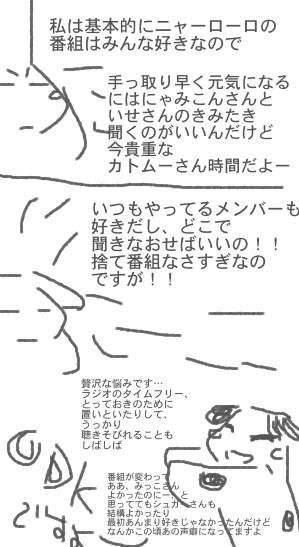 私は基本的にニャーローロの
番組はみんな好きなので
手っ取り早く元気になる
にはにゃみこんさんと
いせさんのきみたき
聞くのがいいんだけど
今貴重な
カトムーさん時間だよー
いつもやってるメンバーも
好きだし、どこで
聞きなおせばいいの！！
捨て番組なさすぎなの
ですが！！
贅沢な悩みです…
ラジオのタイムフリー、
とっておきのために
置いといたりして、
うっかり
聴きそびれることも
しばしば
番組が変わって
ああ、みっこさん
よかったのにー、と
思っててもシュガーさんも
結構よかったり
最初あんまり好きじゃなかったんだけど
なんかこの頃あの声癖になってますよ